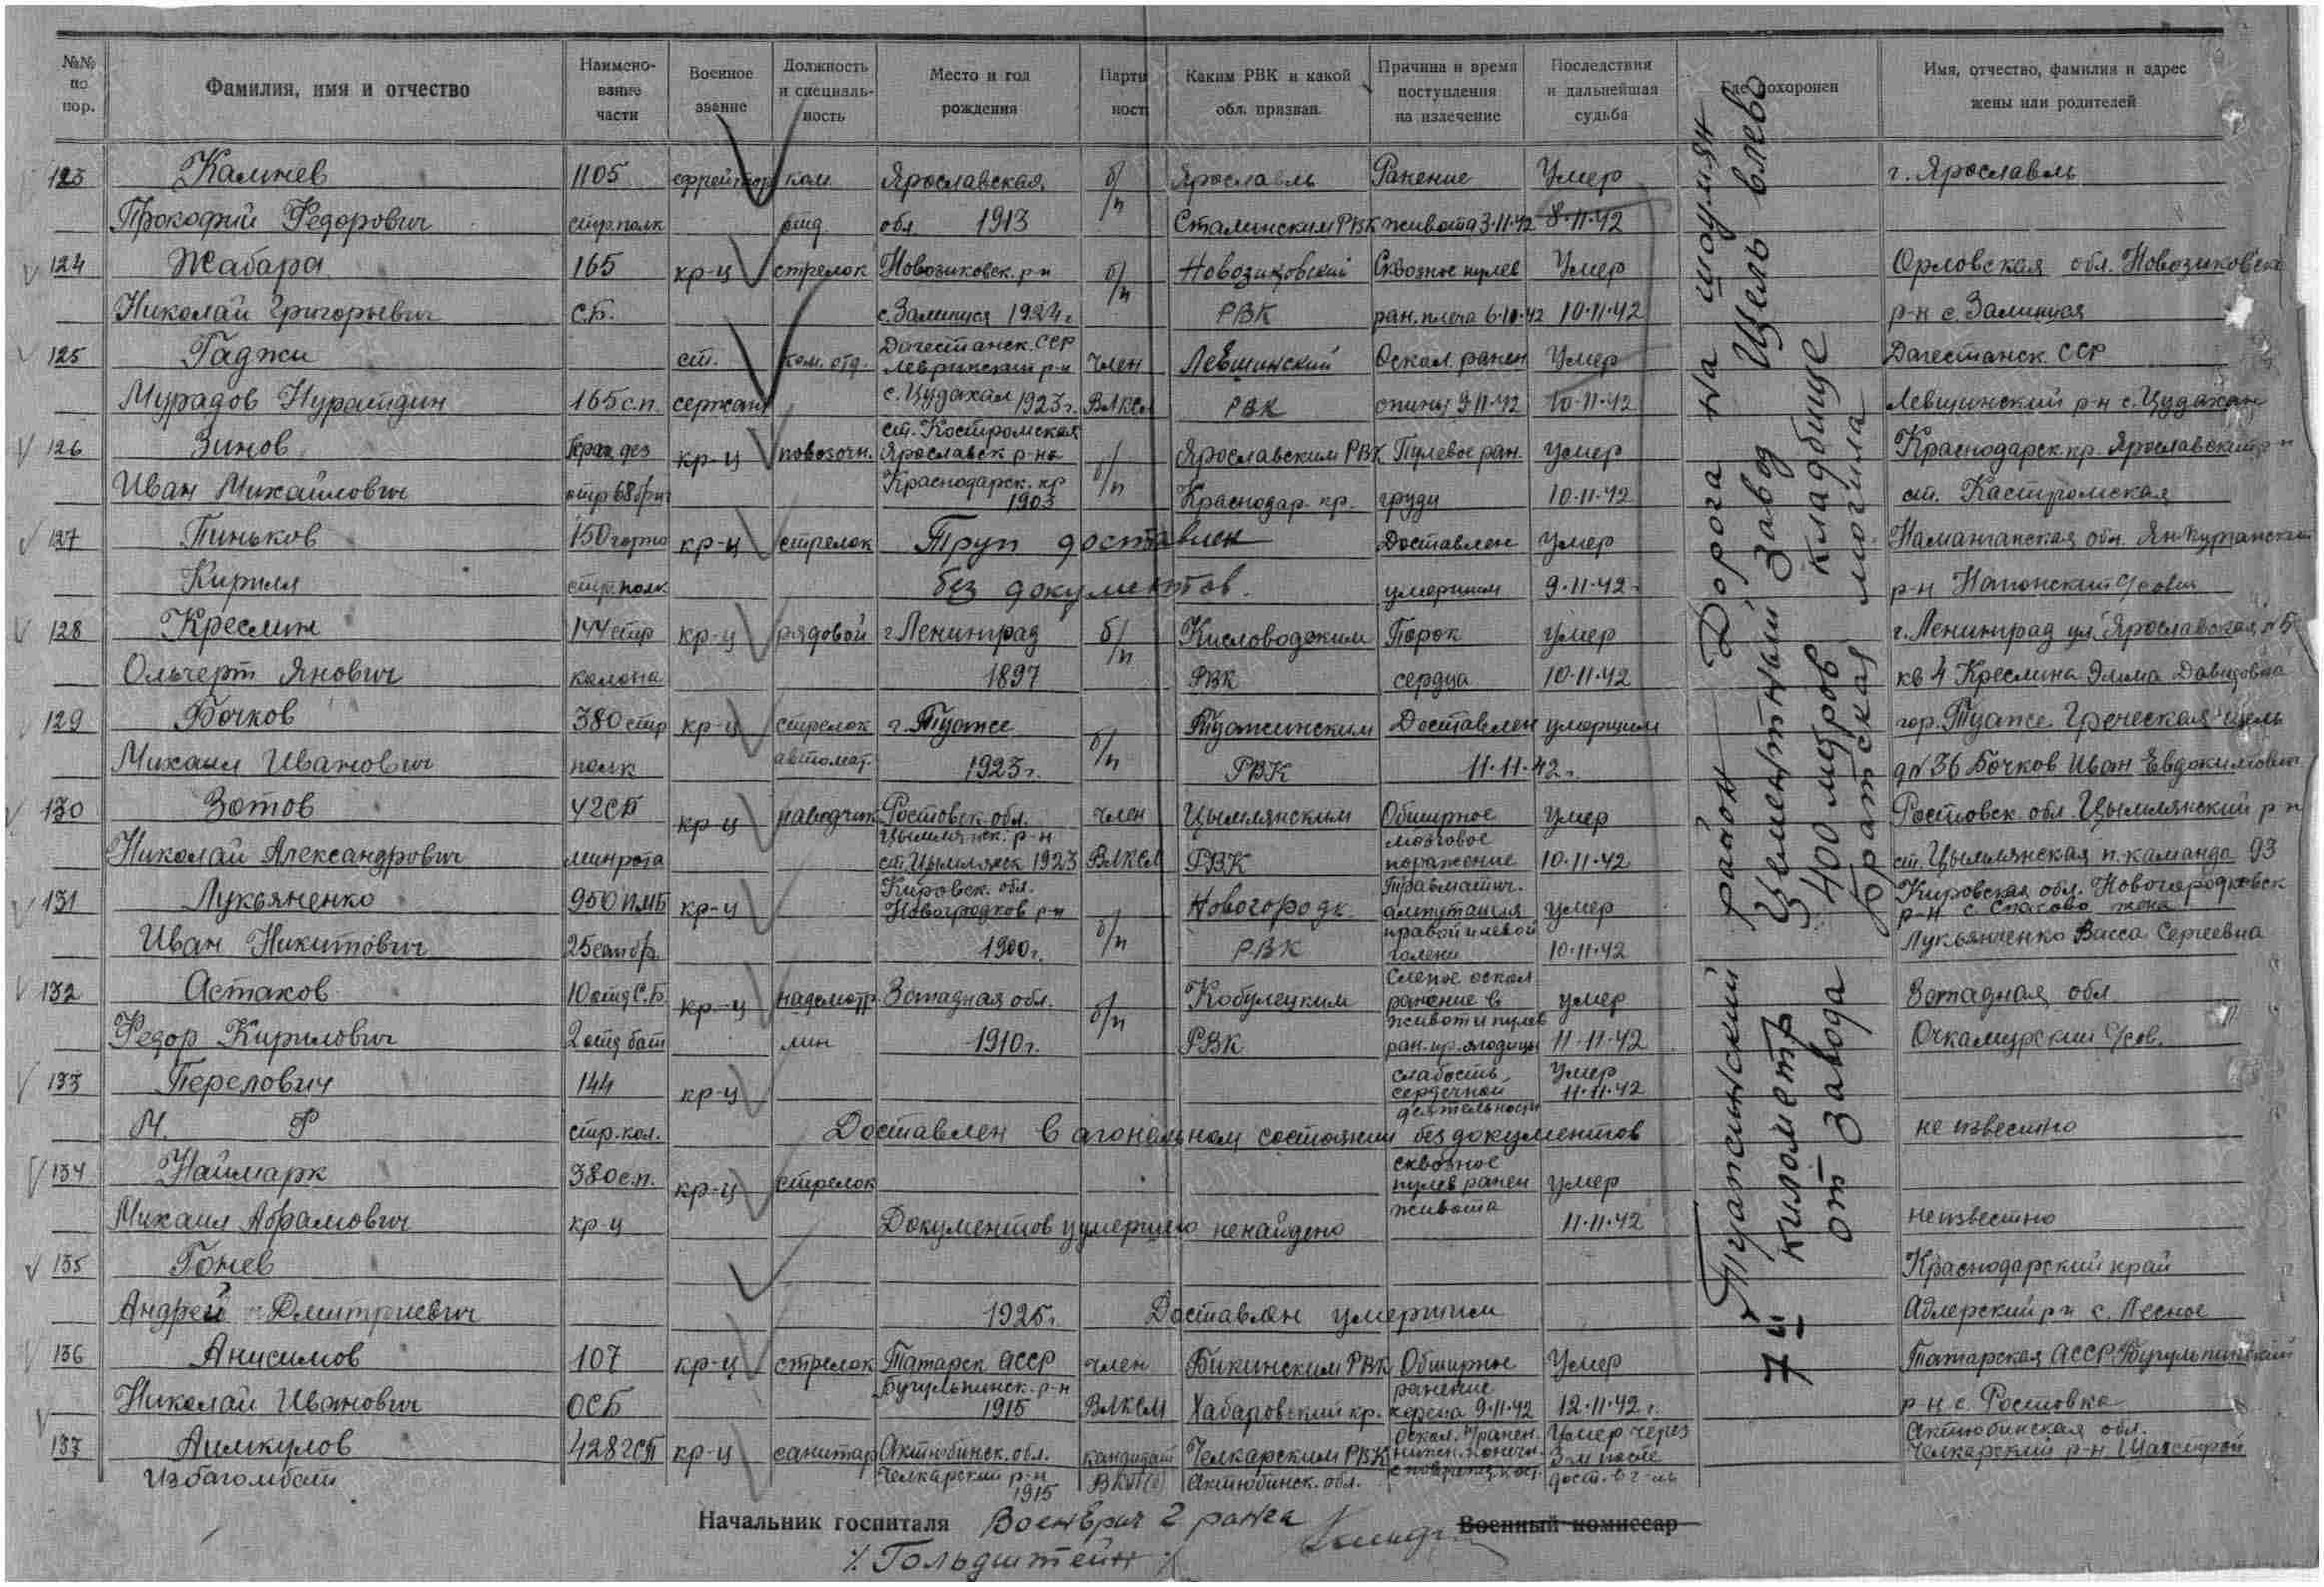 №№ по пор.
Фамилия, имя и отчество
Наимено-вание части
Военное звание
Должность и специаль-ность
Место и год рождения
Парти ность
Каким РВК и какой обл. призван.
Причина и время поступления на излечение
Последствия и дальнейшая судьба
Где похоронен
Имя, отчество, фамилия и адрес жены или родителей
123 Камнев 1105 ефрейтор ком. Ярославская б/п Ярославль Ранение Умер г. Ярославль
Прокофий Федорович стр.полк отд. обл 1913 Сталинским РВК живота 3.11.42 8.11.42
124 Жабара 165 кр-ц стрелок Новозиковск. р-н б/п Сквозное пулев Умер Орловская обл.
Николай Григорьевич С.Б. 1924г. РВК ран. плеча 6.10.42 10.11.42 р-н с.
125 Гаджи ст. ком. отд. Дагестанск. ССР член Левшинский Оскол. ранен Умер Дагестанск. ССР
Мурадов 165 с.п. сержант с. Цудахал 1923г. ВЛКСМ РВК спины 9.11.42 10.11.42 Левшинский р-н с. Цудахан
126 Зинов кр-ц повозочн. ст. Костромская Ярославск р-на б/п Ярославским РВК Пулевое ран. умер Краснодарск. кр.
Иван Михайлович Краснодарск. кр 1903 Краснодар. кр. груди 10.11.42 ст. Кастромская
127 Пиньков 150 кр-ц стрелок Труп доставлен Доставлен умер Наманганская обл.
Кирилл стр.полк без документов. умершим 9.11.42 р-н
128 Креслин 144 стр кр-ц рядовой г. Ленинград б/п Кисловодским Порок умер г. Ленинград ул. Ярославская, № 5
Ольгерт Янович калона 1897 РВК сердца 10.11.42 кв 4 Креслина Эмма Давидовна
129 Бочков 380 стр кр-ц стрелок г. Туапсе б/п Туапсинским Доставлен умершим гор. Туапсе Греческая щель
Михаил Иванович полк автомат. 1923г. РВК 11.11.42г. д № 36 Бочков Иван Евдокимович
130 Зотов 42СП кр-ц наводчик Ростовск. обл. член Цымлянским Обширное умер Ростовск. обл. Цымлянский р-н
Николай Александрович минрота Цымлянск. р-н ст. Цымлянск 1923 ВЛКСМ РВК мозговое поражение 10.11.42 ст. Цымлянская п. каманда 93
131 Лукьяненко 950 ПМБ кр-ц Кировск. обл. Новогродков р-н б/п Новогородк Травматич. ампутация умер Кировская обл. р-н с. Спасово жена
Иван Никитович 1900г. РВК правой и левой голени 10.11.42 Лукьянченко Васса Сергеевна
132 Астахов 10 отд С.Б. кр-ц надсмотр Западная обл. б/п Кобулецким Слепое оскол ранение в умер Западная обл
Федор Кирилович 2 отд бат лин 1910г. РВК живот и пулев ран. пр. ягодицы 11.11.42 Очкамурский с/сов.
133 Перелович 144 кр-ц слабость сердечной деятельности Умер 11.11.42
М. Ф стр. кол. Доставлен в агональном состоянии без документов не известно
134 Наймарк 380 с.п. кр-ц стрелок сквозное пулев ранен умер
Михаил Абрамович кр-ц Документов у умершего не найдено живота 11.11.42 неизвестно
135 Гонев Краснодарский край
Андрей Дмитриевич 1925г. Доставлен умершим Адлерский р-н с. Лесное
136 Анисимов 107 кр-ц стрелок Татарск АССР член Бикинским РВК Обширное Умер Татарская АССР Бугульминский
Николай Иванович ОСБ Бугульминск. р-н 1915 ВЛКСМ Хабаровский кр. ранение черепа 9.11.42 12.11.42г. р-н с. Ростовка
137 Аимкулов 428 ГСП кр-ц санитар Актюбинск. обл. кандидат Челкарским РВК Оскол. ранен. Умер через Актюбинская обл. Челкарский р-н
Избагомбет Челкарский р-н 1915 ВКП(б) Актюбинск. обл. после дост. в г-ль
Туапсинский район Дорога на Шоумян
7й километр Цементный завод Щель влево
от завода 400 метров кладбище
братская могила
Начальник госпиталя Военврач 2 ранга Военный комиссар
/. Гольдштейн /